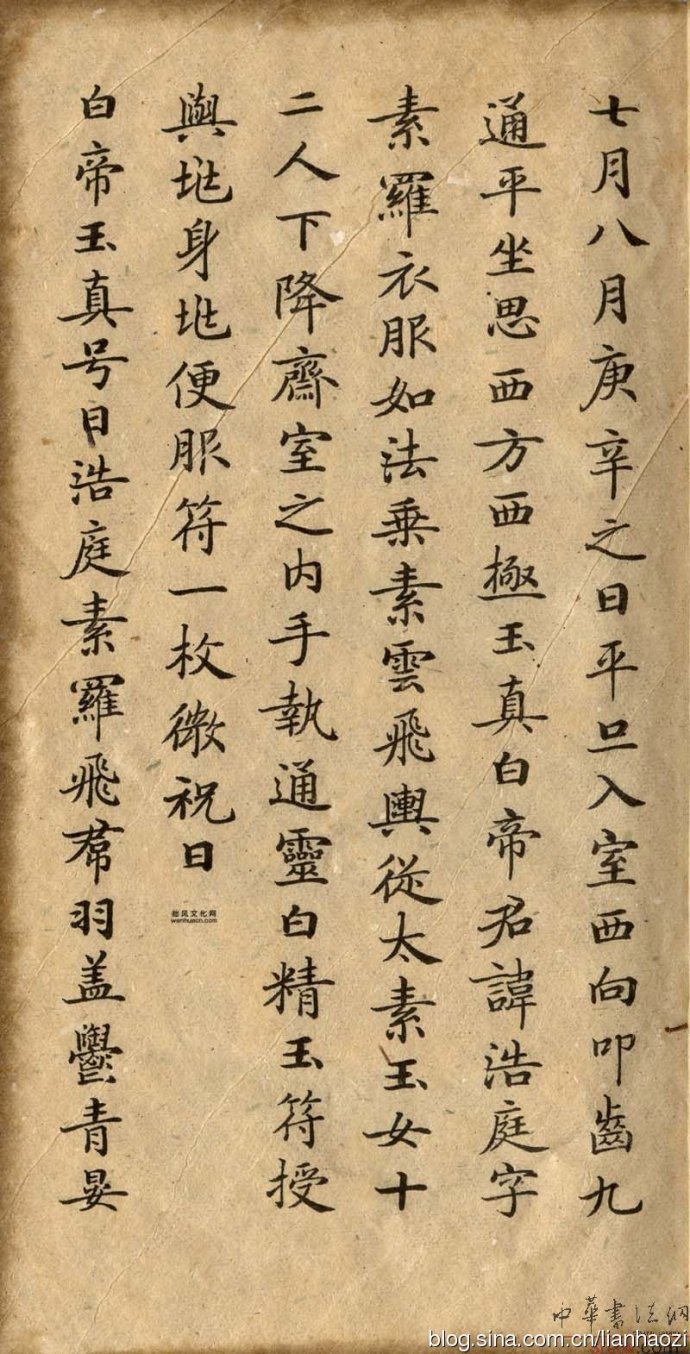 七月八月庚辛之日平旦入室西向叩齒九
通平坐思西方西極玉真白帝君諱浩庭字
素羅衣服如法乗素雲飛輿從太素玉女十
二人下降齋室之内手執通靈白精玉符授
與兆身兆便服符一枚微祝曰
白帝玉真号曰浩庭素羅飛帬羽盖鬱青晏
拙风文化网
wenhuacn.com
中華書法網
blog.sina.com.cn/lianhaozi